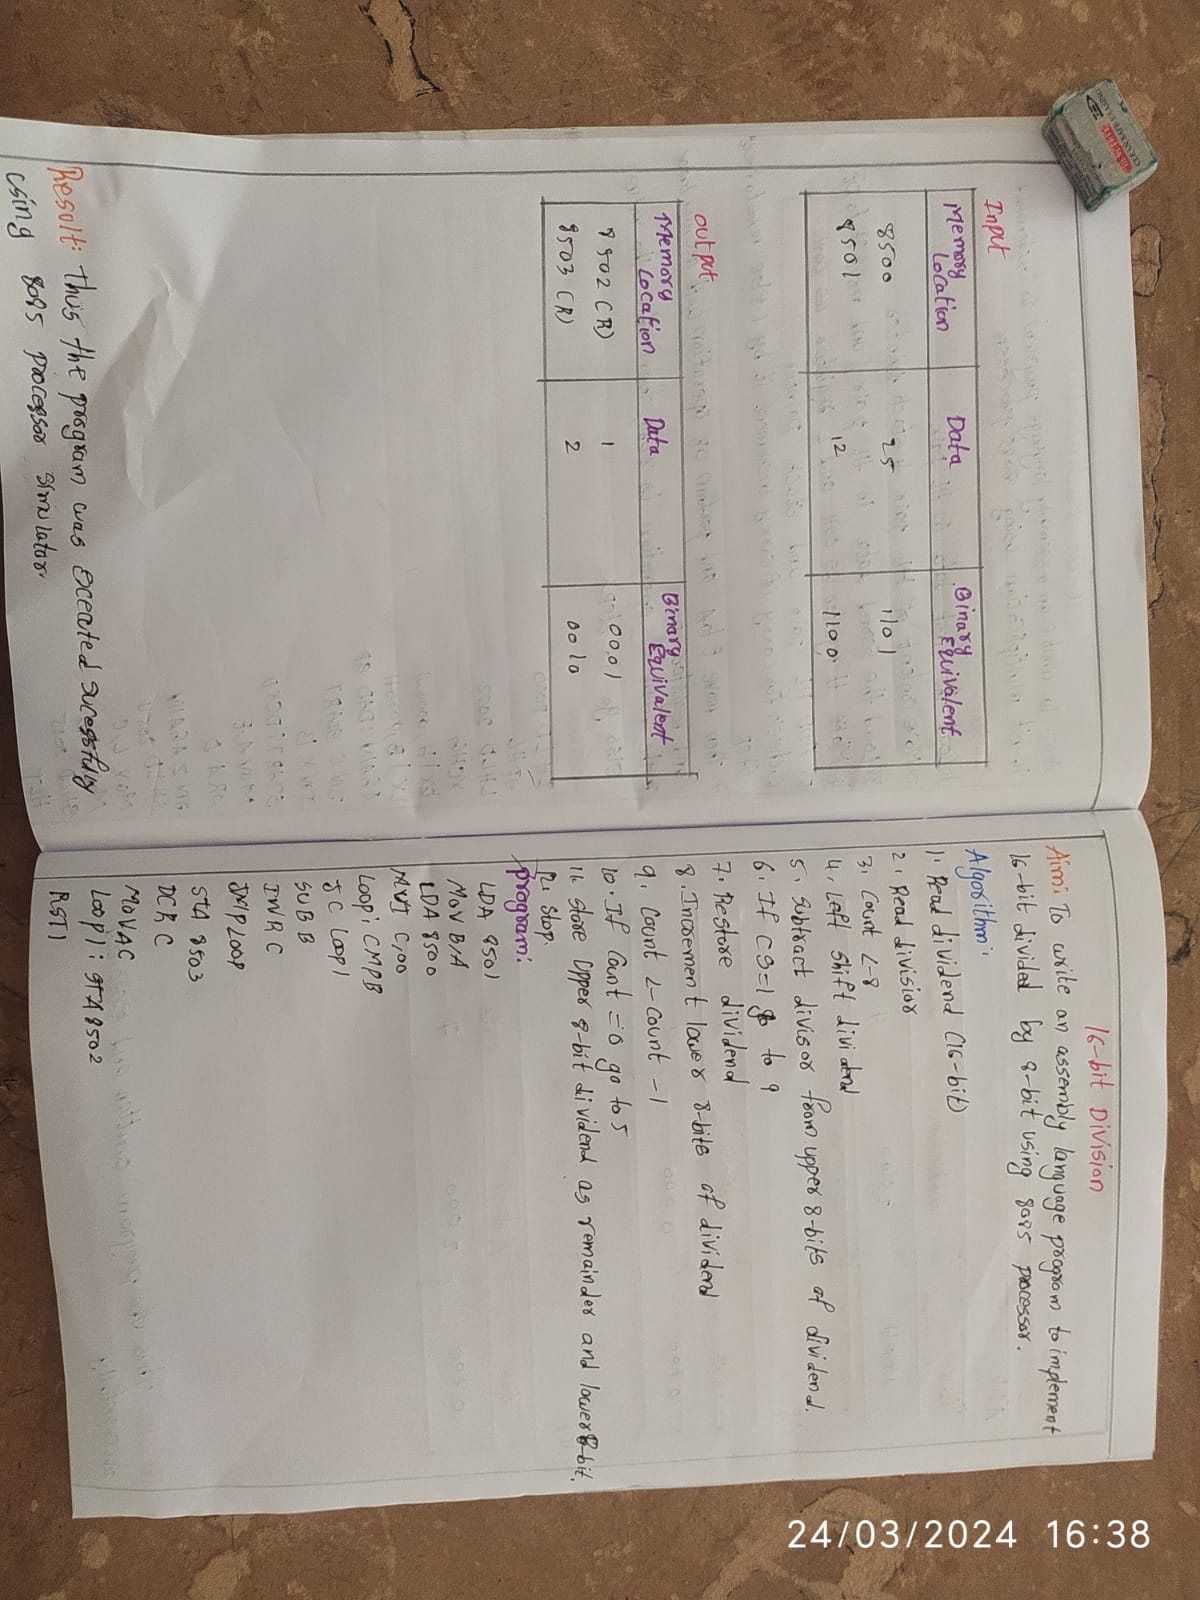 Input
Memory Location Data Binary Equivalent
8500 25 1101
8501 12 1100
output
Memory Location Data Binary Equivalent
8502 (R) 1 0001
8503 (R) 2 0010
Result: Thus the program was
using 8085 processor simulator.
16-bit Division
Aim: To write an assembly language program to implement
16-bit divided by 8-bit using 8085 processor.
Algorithm:
1. Read dividend (16-bit)
2. Read division
3. Count <-8
4. Left shift dividend
5. Subtract divisor from upper 8-bits of dividend.
6. If CS=1 go to 9
7. Restore dividend
8. Increment lower 8-bits of dividend
9. Count <-count -1
10. If Count =0 go to 5
11. Store upper 8-bit dividend as remainder and lower 8-bit.
12. Stop
program:
LDA 8501
MOV B,A
LDA 8500
MVI C,00
Loop: CMPB
JC Loop1
SUB B
INR C
JMP LOOP
STA 8503
DCR C
MOV AC
Loop1: STA 8502
RST1
24/03/2024 16:38